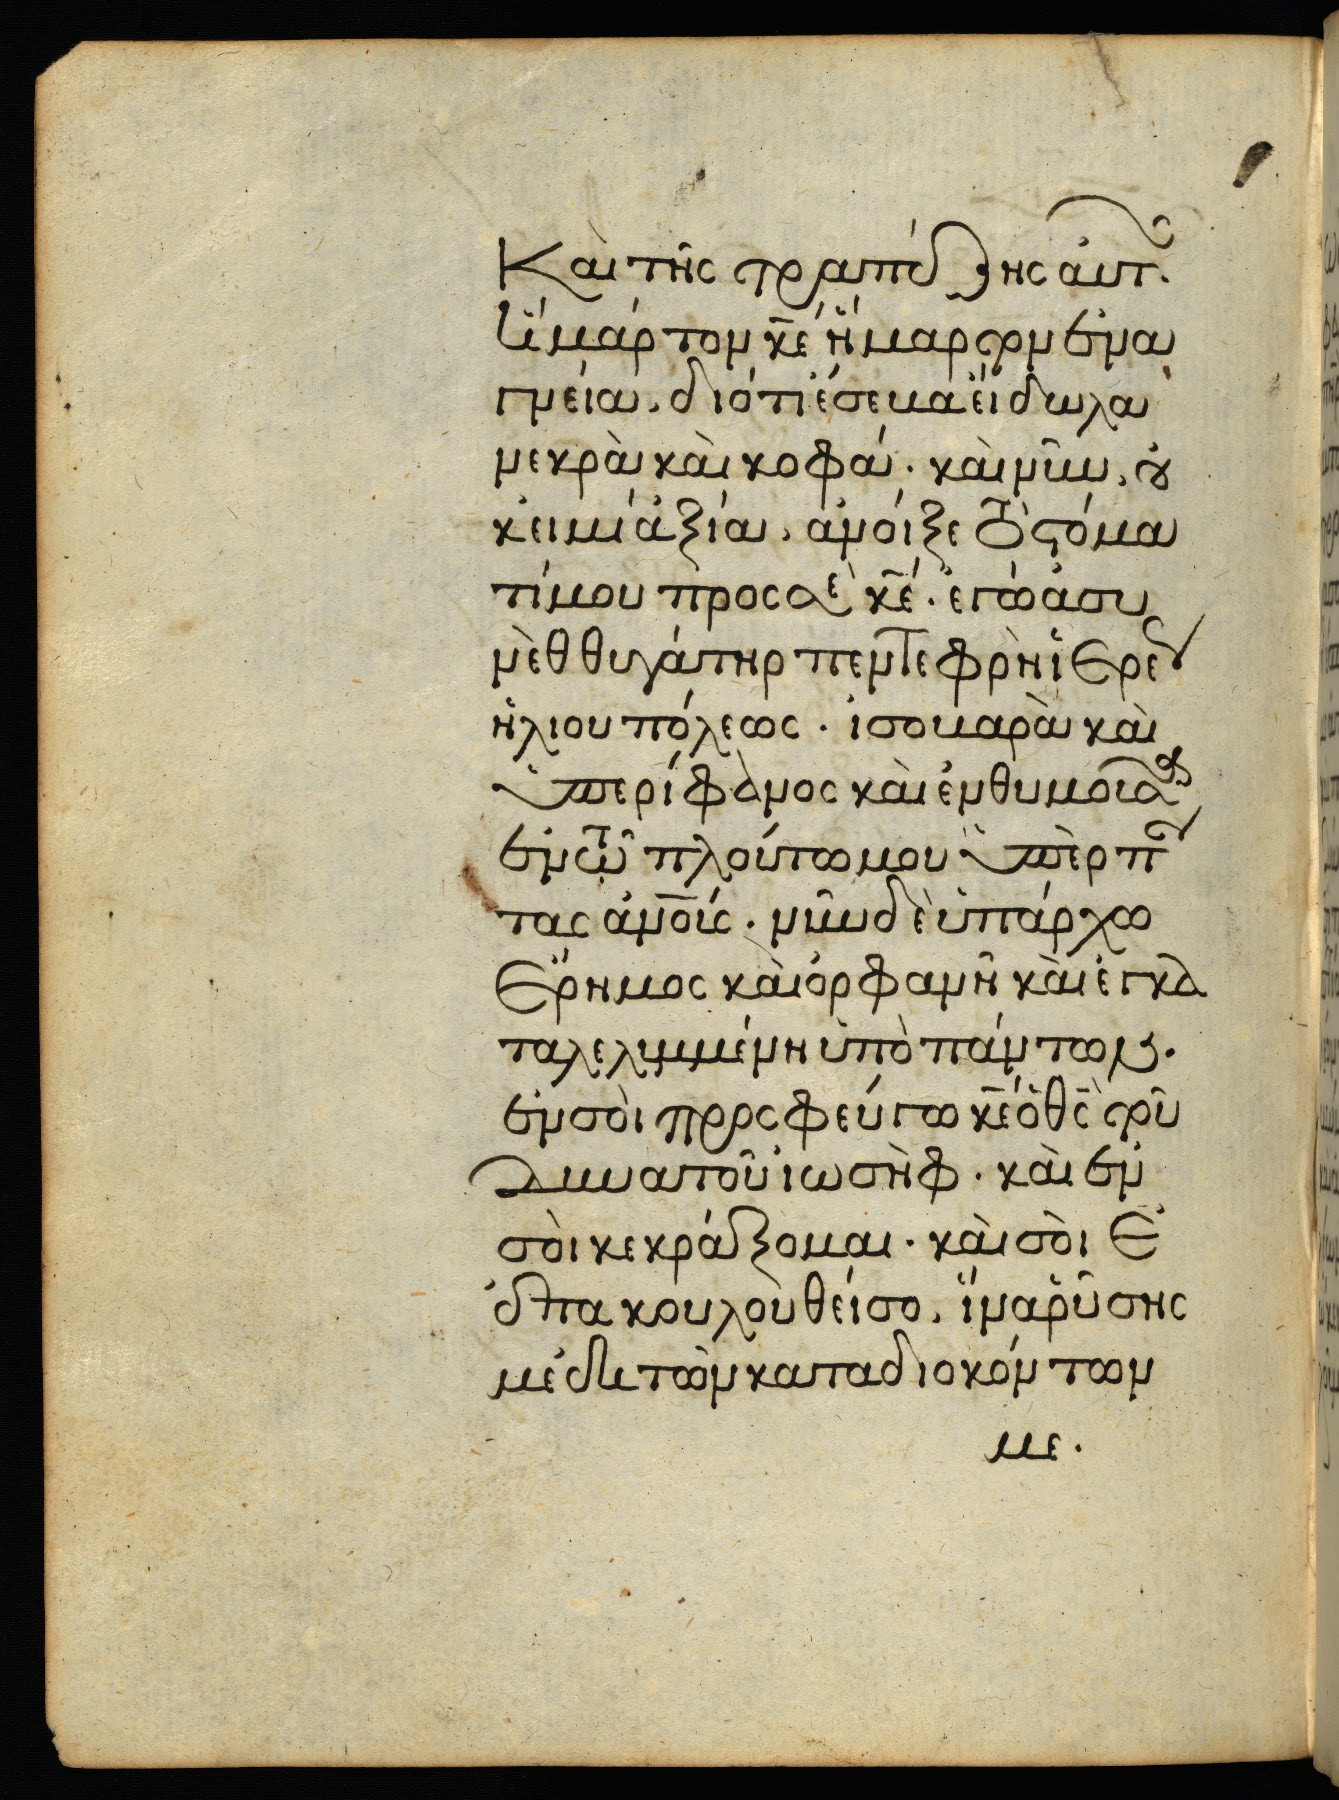 Καὶ τῆς τραπέζης αὐτ.
ἥμάρτον κ̅ε ἥμαρτον ἐνα
γνεία, διότι ἐσεμα εἴδωλα
νεκρὰ καὶ κοφά. καὶ νῦν, οὐ
κ εἰμὶ ἀξία, ἀνοίξε τὸ στόμα
τί μου πρὸς σὲ κ̅ε. ἐγὼ ἀσυ
νὲθ θυγάτηρ πεντεφρῆ ἱερέ
ἡλιουπόλεως. ἱσομαρὰ καὶ
ὑπερίφανος καὶ ἐνθυμοῦσα
ἐν τῶ πλούτω μου ὑπὲρ π
τας ἀνοῖς. νῦν δὲ ὑπάρχω
Ἔρημος καὶ ὀρφανῆ καὶ ἐγκα
ταλελιμμένη ὑπὸ πάντων.
ἐν σοὶ προσφεύγω κ̅ε ὁ θ̅ς τοῦ
δυνατοῦ ἰωσὴφ. καὶ ἐν
σοὶ κεκράξομαι. καὶ σοὶ Ἐ
ἐπακουλουθείσο, ἵνα ῥύσης
μὲ ἐκ τῶν καταδιοκόντων
με.